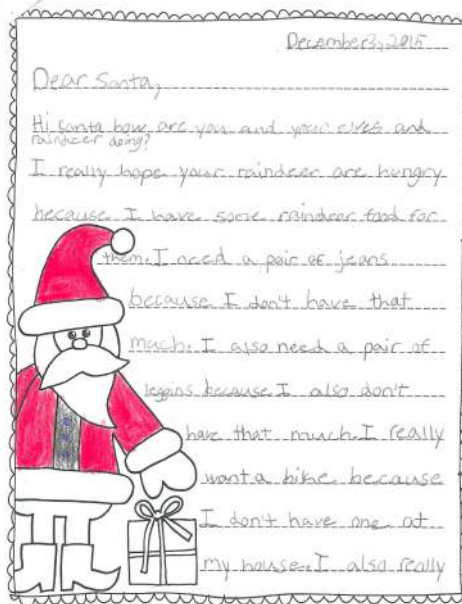 December 3, 2015
Dear Santa,
Hi santa how are you and your elves and
raindeer doing?
I really hope your raindeer are hungry
because I have some raindeer food for
them. I need a pair of jeans
because I don't have that
much. I also need a pair of
leggins because I also don't
have that much. I really
want a bike because
I don't have one at
my house. I also really